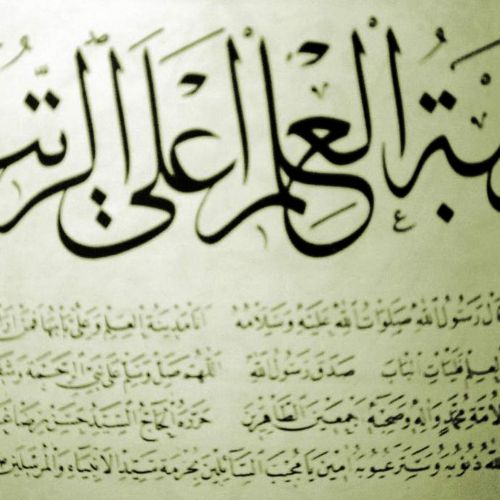 الْعِلْمِ اَعْلَى الرتب
قال رَسُولُ اللهِ صَلَوَاتُ اللهِ عَلَيْهِ وَسَلَامُهُ انا مَدِينَةُ الْعِلْمِ وَعَلِيٌّ بَابُهَا فَمَنْ
الْعِلْمَ فَلْيَاتِ الْبَابَ صَدَقَ رَسُولُ اللهِ اللّهُمَّ صَلِّ وَسَلِّمْ عَلَى نَبِيِّ الرَّحْمَةِ
مُحَمَّدٍ وَالِهِ وَصَحْبِهِ الطَّاهِرِينَ حَرَّرَهُ الْحَاجُّ السَّيِّدْ حَسَنْ رِضَا
اللهُ ذُنُوبَهُ وَسَتَرَ عُيُوبَهُ امِينَ يَا مُجِيبَ السَّائِلِينَ بِحُرْمَةِ سَيِّدِ الْاَنْبِيَاءِ وَالْمُرْسَلِينَ